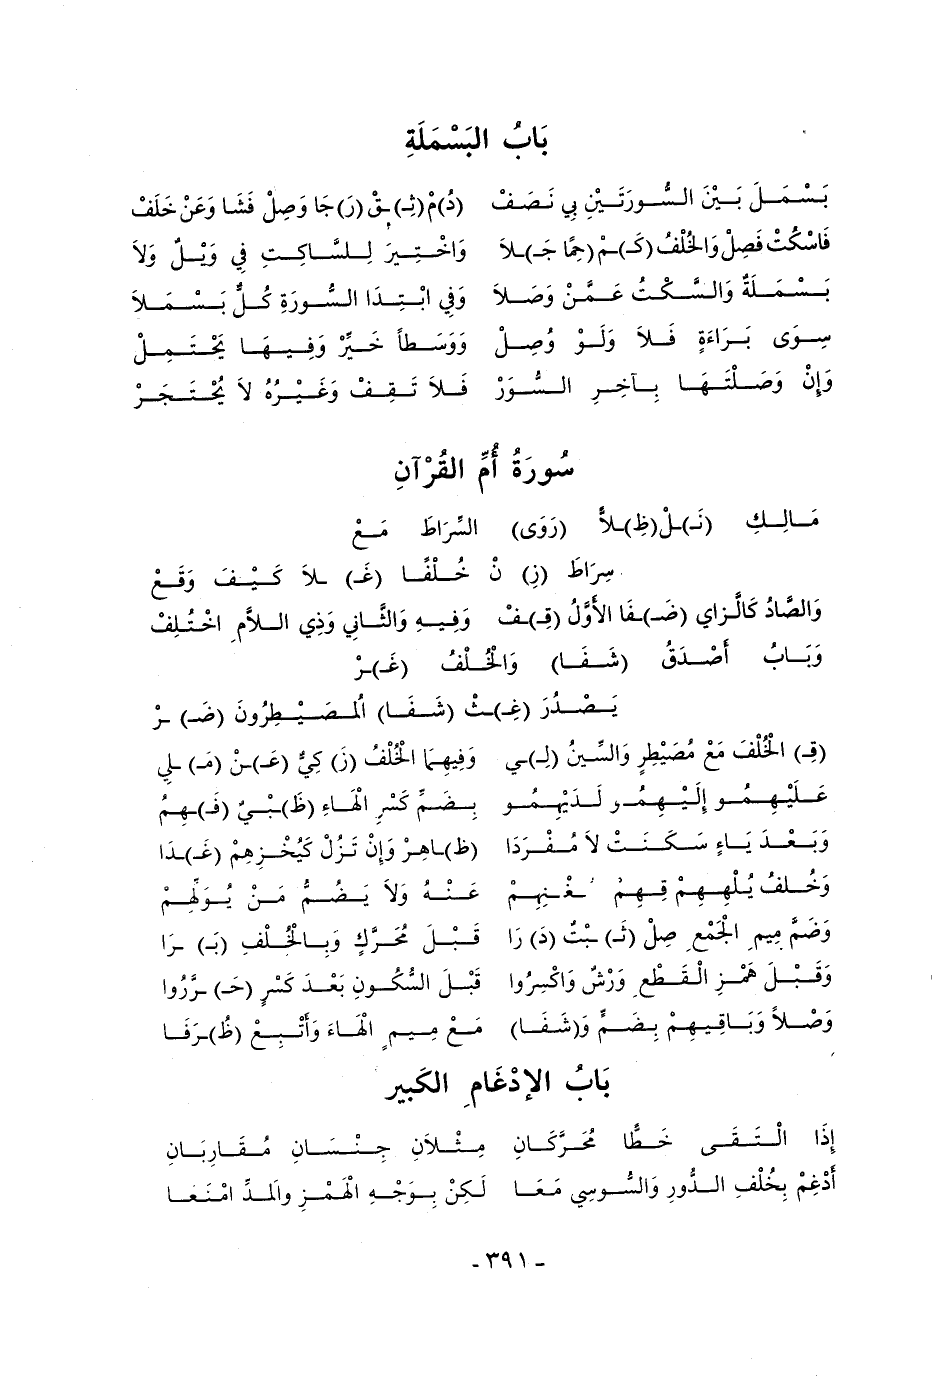 بَابُ البَسْمَلَةِ
بَسْمَلَ بَيْنَ السُّورَتَيْنِ بِي نَصَفْ (دُ)مْ(ثِـ)ـقْ (رَ)جَا وَصِلْ فَشَا وَعَنْ خَلَفْ
فَاسْكُتْ فَصِلْ وَالخُلْفُ (كَـ)ـمْ (حِمًا جَـ)ـلاَ وَاخْتِيرَ لِلسَّاكِتِ فِي وَيْلٌ وَلاَ
بَسْمَلَةٌ وَالسَّكْتُ عَمَّنْ وَصَلاَ وَفِي ابْتِدَا السُّورَةِ كُلٌّ بَسْمَلاَ
سِوَى بَرَاءَةٍ فَلاَ وَلَوْ وُصِلْ وَوَسَطاً خَيِّرْ وَفِيهَا يَحْتَمِلْ
وَإِنْ وَصَلْتَهَا بِآخِرِ السُّوَرْ فَلاَ تَقِفْ وَغَيْرُهُ لاَ يُحْتَجَرْ
سُورَةُ أُمِّ القُرْآنِ
مَالِكِ (نَـ)ـلْ(ظِ)ـلاًّ (رَوَى) السِّرَاطَ مَعْ
سِرَاطَ (زِ) نْ خُلْفًا (غَـ) ـلاَ كَيْفَ وَقَعْ
وَالصَّادُ كَالزَّاي (ضَـ)ـفَا الأَوَّلُ (قِـ)ـفْ وَفِيهِ وَالثَّانِي وَذِي اللاَّمِ اخْتُلِفْ
وَبَابُ أَصْدَقُ (شَفَا) وَالخُلْفُ (غَـ)ـرْ
يَصْدُرَ (غِـ)ـثْ (شَفَا) الُمصَيْطِرُونَ (ضَـ) ـرْ
(قِـ) الخُلْفَ مَعْ مُصَيْطِرٍ وَالسِّينُ (لِـ)ـي وَفِيهِمَا الخُلْفُ (زَ) كِيٌّ (عَـ)ـنْ (مَـ) ـلِي
عَلَيْهِمُو إِلَيْهِمُو لَدَيْهِمُو بِضَمِّ كَسْرِ الْهَاءِ (ظَ)ـبْيٌ (فَـ)ـهِمُ
وَبَعْدَ يَاءٍ سَكَنَتْ لاَ مُفْرَدَا (ظَ)ـاهِرْ وَإِنْ تَزُلْ كَيُخْزِهِمْ (غَـ)ـدَا
وَخُلْفُ يُلْهِهِمْ قِهِمْ يُغْنِهِمْ عَنْهُ وَلاَ يَضُمُّ مَنْ يُوَلِّهِمْ
وَضَمَّ مِيمِ الْجَمْعِ صِلْ (ثَـ) ـبْتُ (دَ) رَا قَبْلَ مُحَرَّكٍ وَبِالخُلْفِ (بَـ) ـرَا
وَقَبْلَ هَمْزِ الْقَطْعِ وَرْشٌ وَاكْسِرُوا قَبْلَ السُّكُونِ بَعْدَ كَسْرٍ (حَـ) ـرَّرُوا
وَصْلاً وَبَاقِيهِمْ بِضَمٍّ وَ(شَفَا) مَعْ مِيمٍ الْهَاءَ وَأَتْبِعْ (ظُ)ـرَفَا
بَابُ الإِدْغَامِ الكَبِيرِ
إِذَا الْتَقَى خَطًّا مُحَرَّكَانِ مِثْلاَنِ جِنْسَانِ مُقَارِبَانِ
أَدْغِمْ بِخُلْفِ الدُّورِ وَالسُّوسِي مَعَا لَكِنْ بِوَجْهِ الْهَمْزِ وَالَمدِّ امْنَعَا
- ٣٩١ -